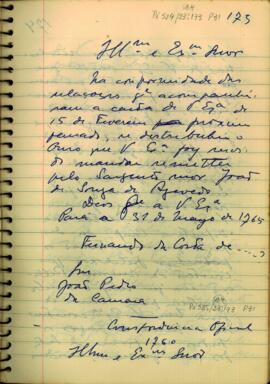 175
Illmo e Exmo Snor
Na conformidade das
relaçoens q' acompanhá-
ram a carta de V Exa de
15 de Fevereiro próximo
passado, se distribuhio o
Ouro que V Exa foy servi-
do mandar remetter
pelo Sargento mor João
de Souza de Azevedo.
Deos gde a V Exa
Pará a 31 de Março de 1765
Fernando da Costa de
Snr
João Pedro
da Camara
Correspondencia Official
1760
Illmo e Exmo Snor